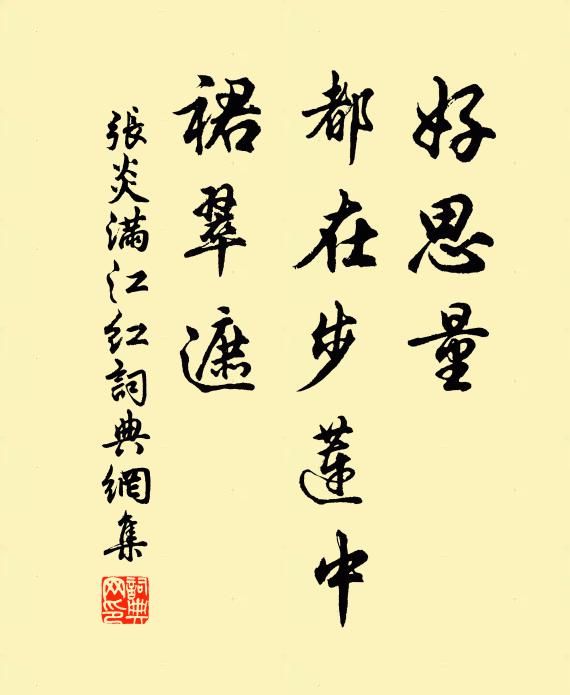 好思量
都在步蓮中
裙翠遮
張炎滿江紅詞典網集
詞典网印